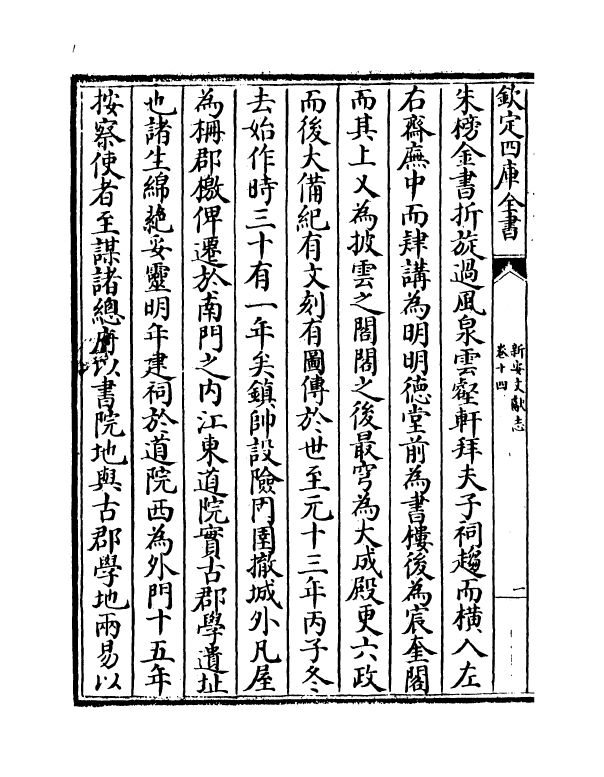 欽定四庫全書
新安文獻志
卷十四
一
朱榜金書折旋過風泉雲壑軒拜夫子祠趨而橫入左
右齋廡中而肄講為明明德堂前為書樓後為宸奎閣
而其上又為披雲之閣閣之後最穹為大成殿更六政
而後大備紀有文刻有圖傳於世至元十三年丙子冬
去始作時三十有一年矣鎮帥設險門圍撤城外凡屋
為柵郡檄俾遷於南門之内江東道院實古郡學遺址
也諸生綿蕝妥靈明年建祠於道院西為外門十五年
按察使者至謀諸總府以書院地與古郡學地兩易以